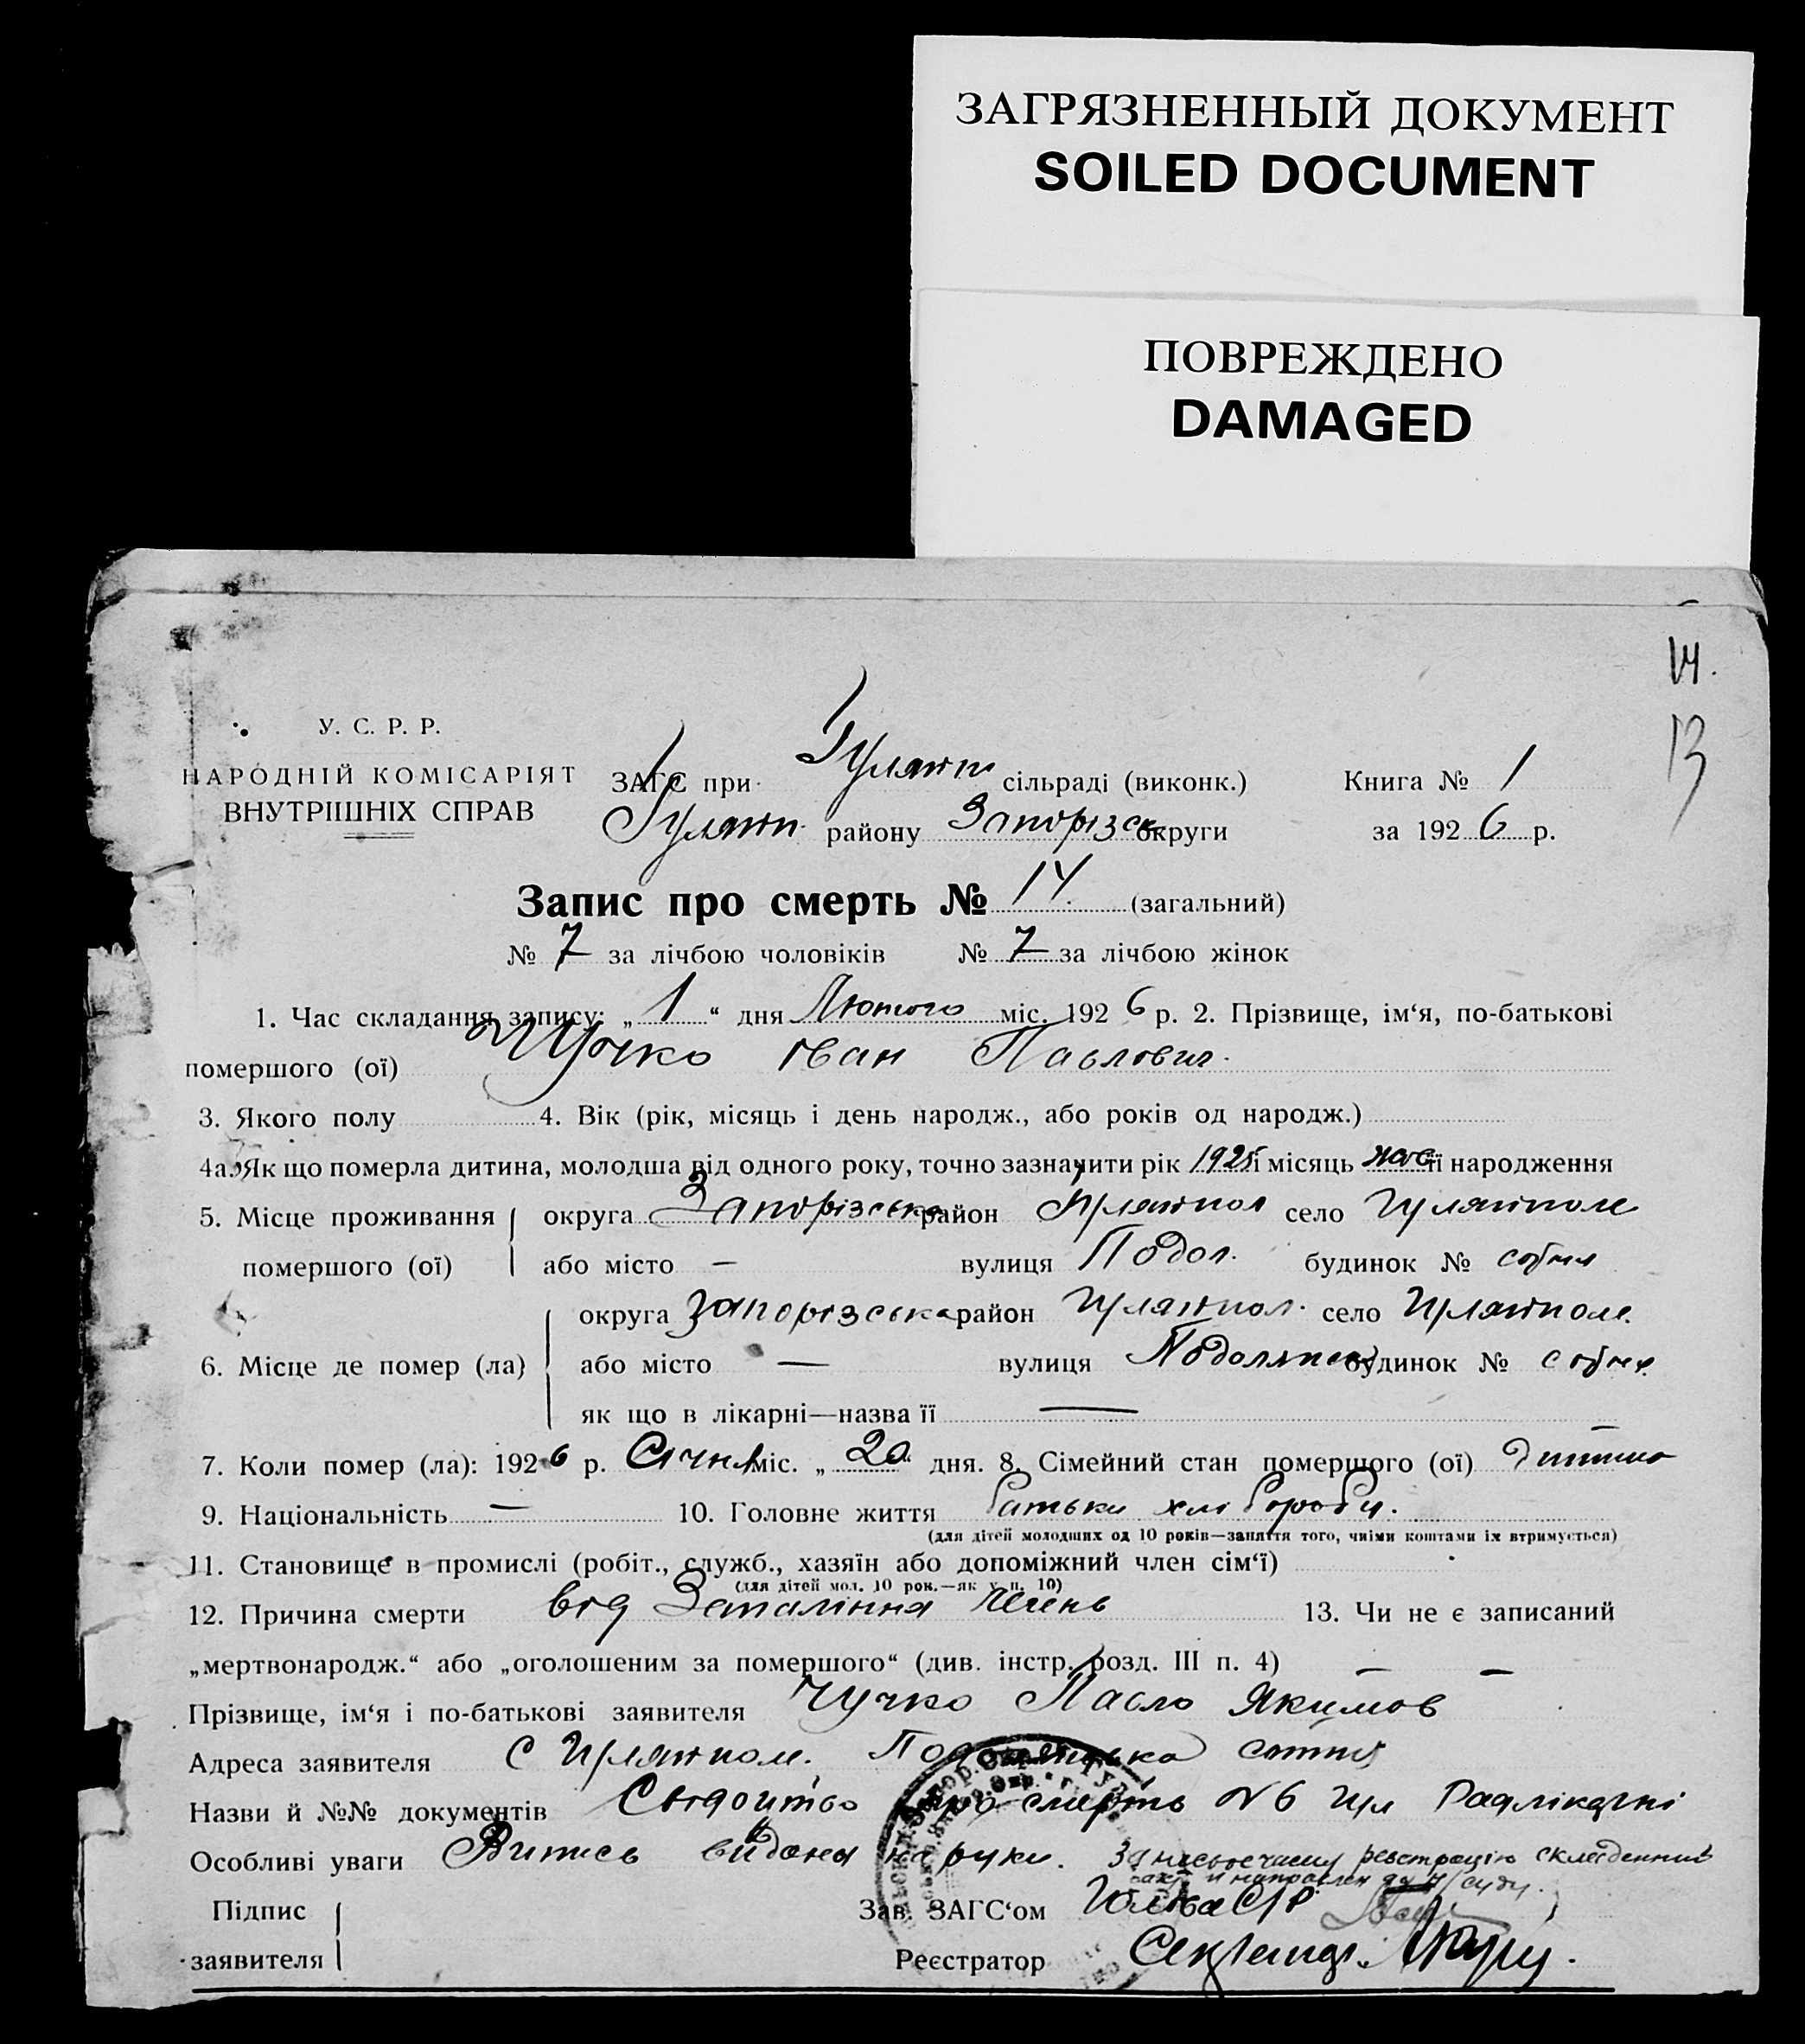 ЗАГРЯЗНЕННЫЙ ДОКУМЕНТ
SOILED DOCUMENT
ПОВРЕЖДЕНО
DAMAGED
14.
13
У. С. Р. Р.
НАРОДНІЙ КОМІСАРІЯТ
ВНУТРІШНІХ СПРАВ
ЗАГС при Гуляйп сільраді (виконк.) Книга № 1
Гуляйп. району Запорізськ округи за 1926 р.
Запис про смерть № 14. (загальний)
№ 7 за лічбою чоловіків № 7 за лічбою жінок
1. Час складання запису: „1“ дня Лютого міс. 1926 р. 2. Прізвище, ім‘я, по-батькові
помершого (ої) Чучко Іван Павлович.
3. Якого полу 4. Вік (рік, місяць і день народж., або років од народж.)
4а. Як що померла дитина, молодша від одного року, точно зазначити рік 1925 і місяць її народження
5. Місце проживання округа Запорізська район Гуляйпол село Гуляйполе
помершого (ої) або місто — вулиця Подол. будинок №
округа Запорізська район Гуляйпол. село Гуляйполе.
6. Місце де помер (ла) або місто — вулиця будинок №
як що в лікарні—назва її —
7. Коли помер (ла): 1926 р. Січня міс. „20“ дня. 8. Сімейний стан помершого (ої) дитина
9. Національність — 10. Головне життя батьки хлібороби.
(для дітей молодших од 10 років—заняття того, чиїми коштами їх втримується)
11. Становище в промислі (робіт., служб., хазяїн або допоміжний член сім‘ї)
(для дітей мол. 10 рок.—як у п. 10)
12. Причина смерти від Запаління легень 13. Чи не є записаний
„мертвонародж.“ або „оголошеним за помершого“ (див. інстр. розд. III п. 4) — —
Прізвище, ім‘я і по-батькові заявителя Чучко Павло Якимов
Адреса заявителя с Гуляйполе. Подолянська сотня
Назви й №№ документів Свідоцтво про смерть №6 Гул Радлікарні
Особливі уваги Витись видана на руки. За несвоечасну реєстрацію складенний
акт и направлен до Н/суду.
Підпис
заявителя
Зав. ЗАГС‘ом Голова С/Р
Реєстратор Секретар.